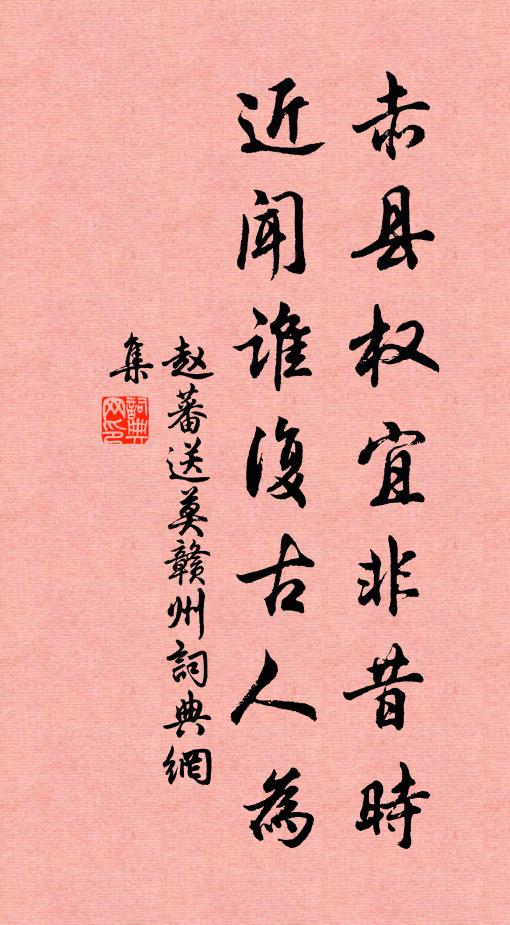 赤县权宜非昔時
近闻谁復古人為
赵蕃送莫赣州詞典網
集
詞典网印